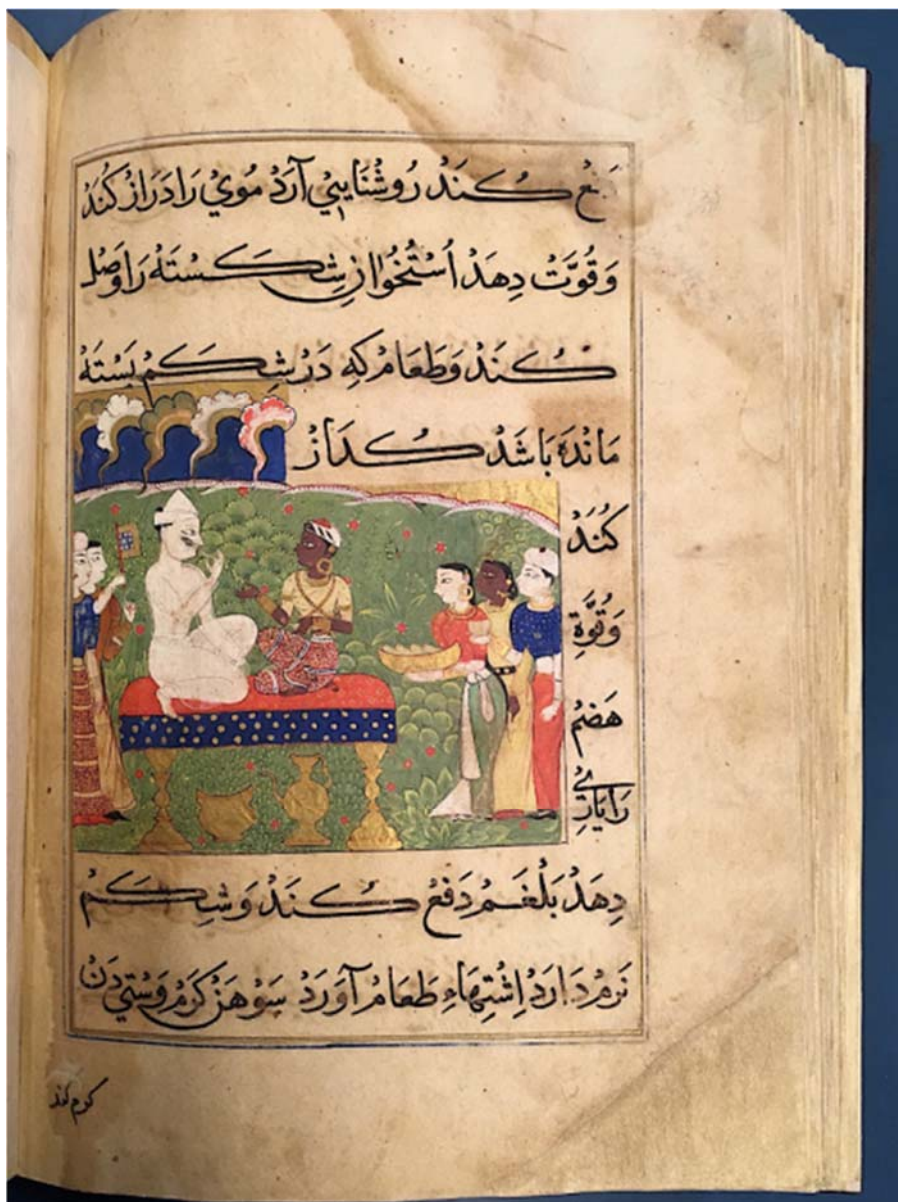 کُنَدْ رُوشْنَايِيْ آرَدْ مُويْ رَا دَرَازْ کُنَدْ
وَقُوَّتْ دِهَدْ اُسْتُخْوَانِ شِکَسْتَهْ رَا وَصْل
کُنَدْ وَطَعَامْ کِهْ دَرْ شِکَمْ بَسْتَهْ
مَانْدَه بَاشَدْ کُدَازْ
کُنَدْ
وَقُوَّةِ
هَضْمْ
رَا يَارِيْ
دِهَدْ بَلْغَمْ دَفْعْ کُنَدْ وَشِکَمْ
نَرمْ دَارَدْ اِشْتِهَاءِ طَعَامْ آوَرَدْ سَوْهَنْ کَرمْ وَسْتِي